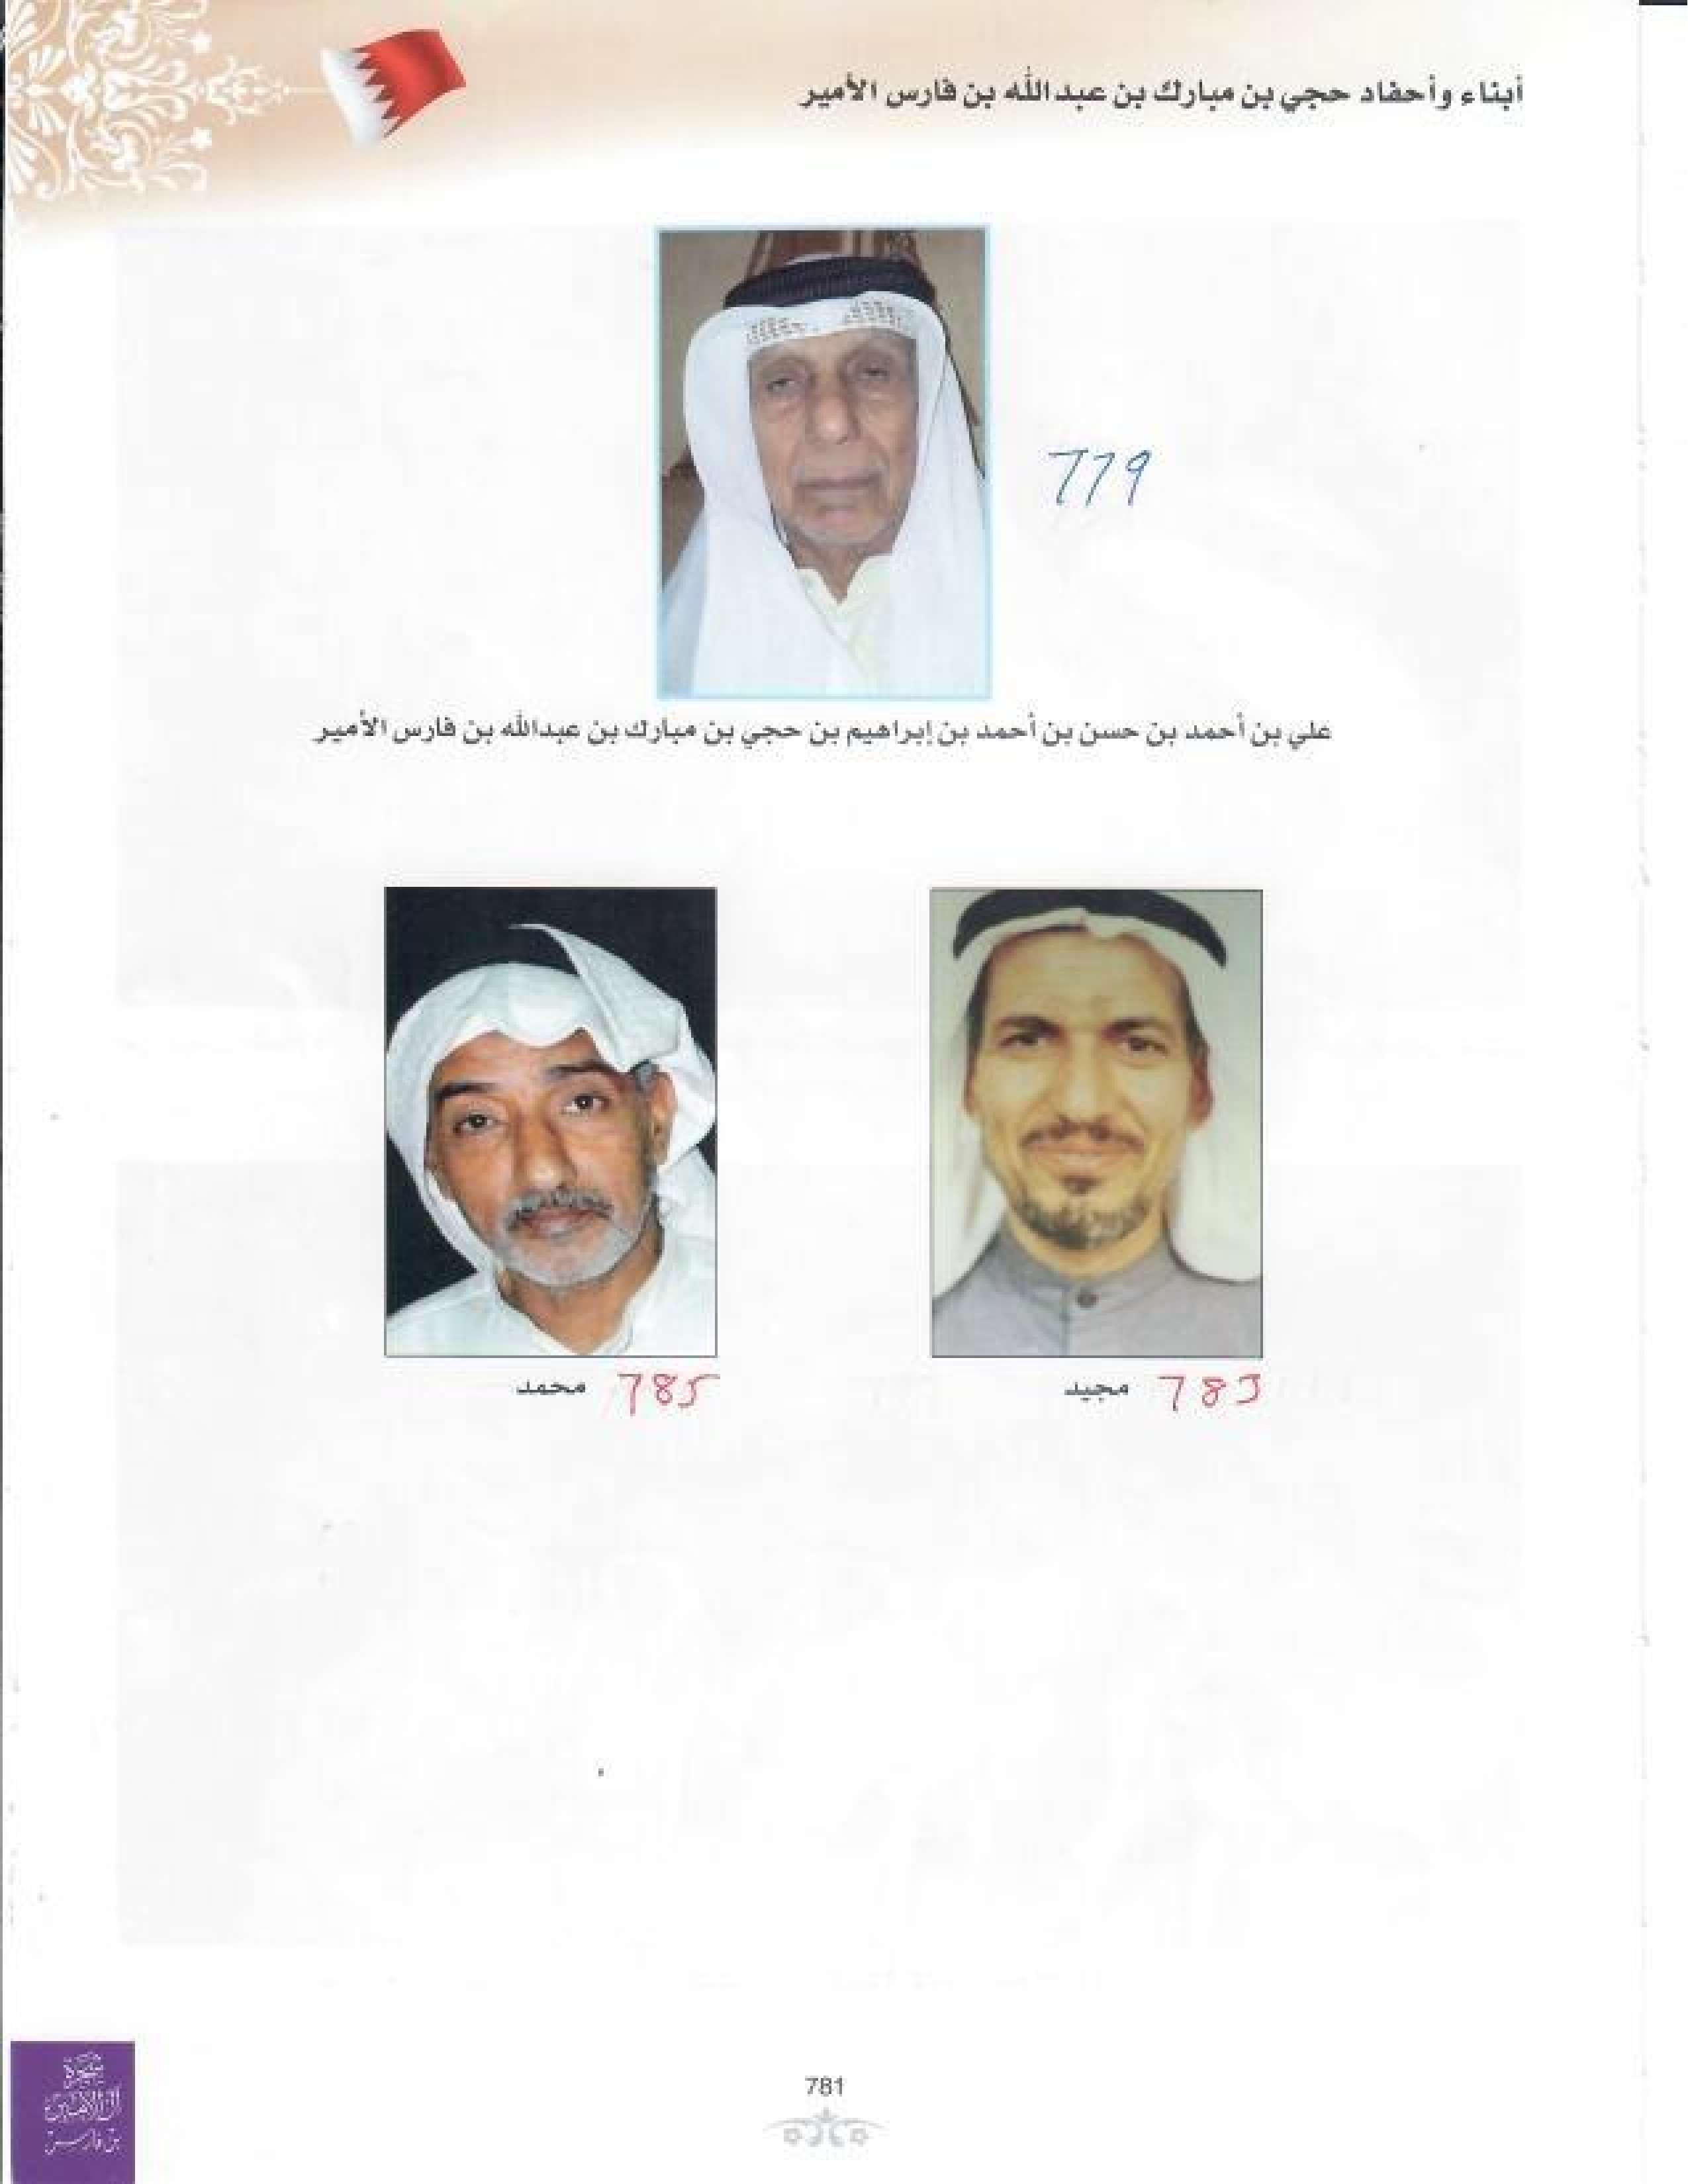 أبناء وأحفاد حجي بن مبارك بن عبدالله بن فارس الأمير
779
علي بن أحمد بن حسن بن أحمد بن إبراهيم بن حجي بن مبارك بن عبدالله بن فارس الأمير
783 مجيد
785 محمد
781
شجرة
آل الأمير
بن فارس